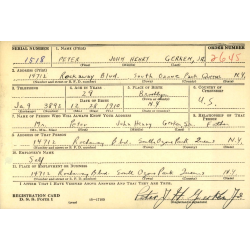 SERIAL NUMBER 1. NAME (PRINT) ORDER NUMBER
1518 PETER JOHN HENRY GERKEN, JR. 2648
2. ADDRESS (PRINT)
14712 Rockaway Blvd. South Ozone Park Queens N.Y.
3. TELEPHONE 4. AGE IN YEARS 5. PLACE OF BIRTH 6. COUNTRY OF CITIZENSHIP
28 Brooklyn
Ja 9 3892 28 1912 N.Y. U.S.
7. NAME OF PERSON WHO WILL ALWAYS KNOW YOUR ADDRESS 8. RELATIONSHIP OF THAT PERSON
Mr. Peter John Henry Gerken Sr. Father
9. ADDRESS OF THAT PERSON
14712 Rockaway Blvd. South Ozone Park Queens N.Y.
10. EMPLOYER'S NAME
Self
11. PLACE OF EMPLOYMENT OR BUSINESS
14712 Rockaway Blvd South Ozone Park Queens N.Y.
I AFFIRM THAT I HAVE VERIFIED ABOVE ANSWERS AND THAT THEY ARE TRUE.
REGISTRATION CARD
D. S. S. FORM 1
Peter J. H. Gerken Jr.